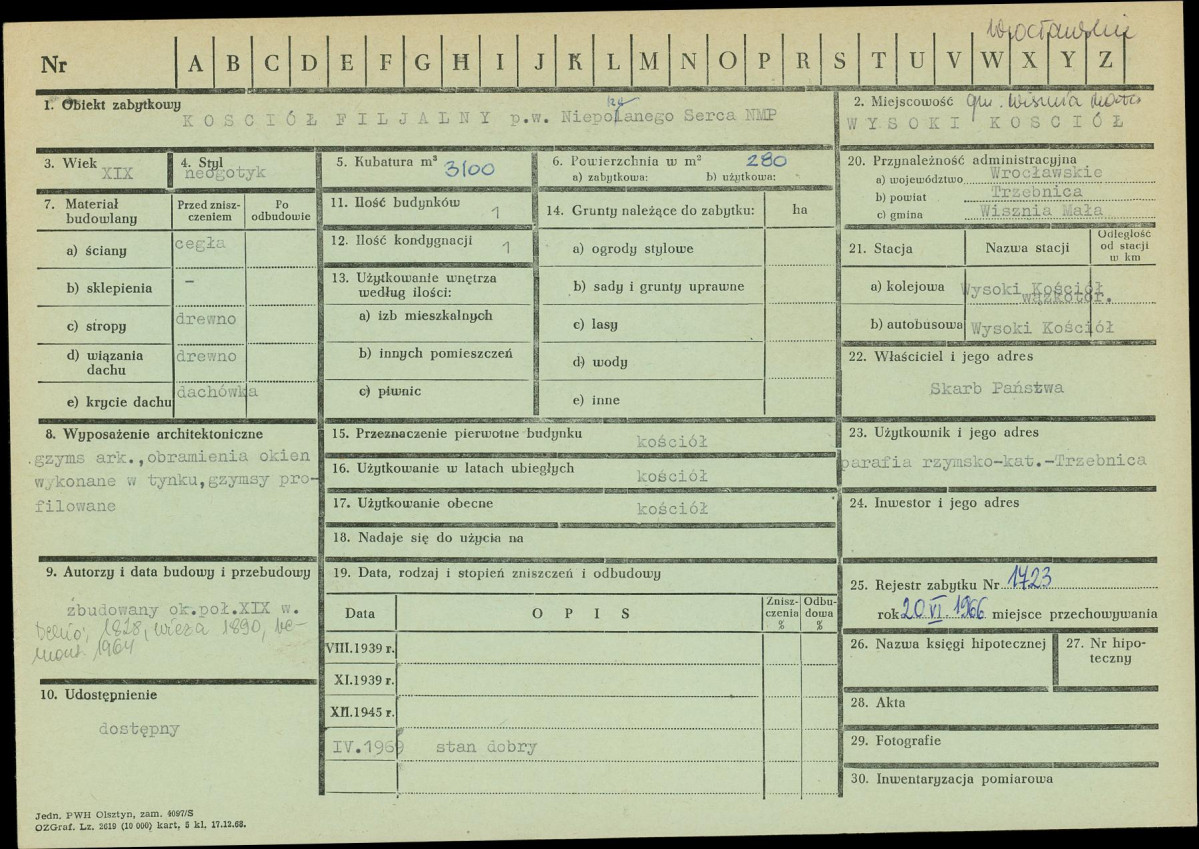 Wrocławskie
Nr A B C D E F G H I J K L M N O P R S T U V W X Y Z
1. Obiekt zabytkowy
KOSCIÓŁ FILJALNY p.w. Niepolanego Serca NMP
2. Miejscowość gm. Wisznia Mała
WYSOKI KOSCIÓŁ
3. Wiek
XIX
4. Styl
neogotyk
5. Kubatura m³ 3100
6. Powierzchnia w m² 280
a) zabytkowa: b) użytkowa:
7. Materiał budowlany
Przed zniszczeniem
Po odbudowie
a) ściany cegła
b) sklepienia –
c) stropy drewno
d) wiązania dachu drewno
e) krycie dachu dachówka
8. Wyposażenie architektoniczne
gzyms ark.,obramienia okien
wykonane w tynku,gzymsy pro-
filowane
9. Autorzy i data budowy i przebudowy
zbudowany ok.poł.XIX w.
1828, wieża 1890, re-
mont 1964
10. Udostępnienie
dostępny
11. Ilość budynków 1
12. Ilość kondygnacji 1
13. Użytkowanie wnętrza
według ilości:
a) izb mieszkalnych
b) innych pomieszczeń
c) piwnic
14. Grunty należące do zabytku: ha
a) ogrody stylowe
b) sady i grunty uprawne
c) lasy
d) wody
e) inne
15. Przeznaczenie pierwotne budynku kościół
16. Użytkowanie w latach ubiegłych kościół
17. Użytkowanie obecne kościół
18. Nadaje się do użycia na
19. Data, rodzaj i stopień zniszczeń i odbudowy
Data OPIS Zniszczenia % Odbudowa %
VIII.1939 r.
XI.1939 r.
XII.1945 r.
IV.1969 stan dobry
20. Przynależność administracyjna
a) województwo Wrocławskie
b) powiat Trzebnica
c) gmina Wisznia Mała
21. Stacja Nazwa stacji Odległość od stacji w km
a) kolejowa Wysoki Kościół
wązkotor.
b) autobusowa Wysoki Kościół
22. Właściciel i jego adres
Skarb Państwa
23. Użytkownik i jego adres
parafia rzymsko-kat.-Trzebnica
24. Inwestor i jego adres
25. Rejestr zabytku Nr 1723
rok 20 VI. 1966 miejsce przechowywania
26. Nazwa księgi hipotecznej
27. Nr hipoteczny
28. Akta
29. Fotografie
30. Inwentaryzacja pomiarowa
Jedn. PWH Olsztyn, zam. 4097/S
OZGraf. Lz. 2619 (10 000) kart. 5 kl. 17.12.68.